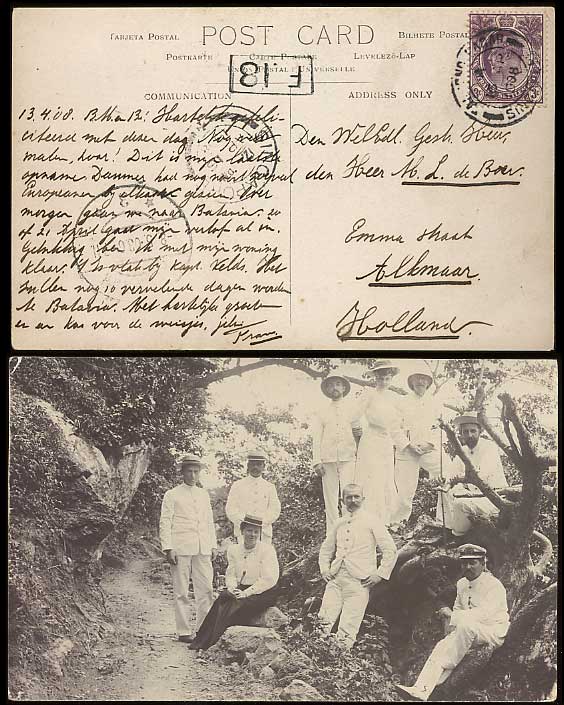 TARJETA POSTAL POST CARD BILHETE POSTAL
POSTKARTE CARTE POSTALE LEVELEZÖ-LAP
UNION POSTALE UNIVERSELLE
F.13
COMMUNICATION ADDRESS ONLY
13.4.08. Hartelijk gefeli-
citeerd met dezen dag. Nog vele
malen, hoor! Dit is mijn laatste
opname. Dammer had nog nooit zooveel
Europeanen bij elkaar gezien. Over
morgen gaan we naar Batavia. en
op 21 April gaat mijn verlof al in.
Gelukkig ben ik met mijn woning
klaar. 't Is vlak bij Kapt. Het
zullen nog 10 vervelende dagen worden
te Batavia. Met hartelijke groeten
en een kus voor de meisjes, je
Den WelEdl. Gestr. Heer,
den Heer M. L. de Boer.
Emma straat
Alkmaar.
Holland.